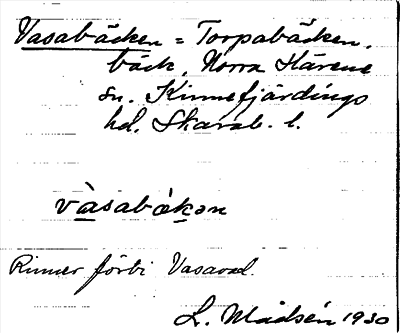 Vasabäcken = Torpabäcken,
bäck, Norra Härene
sn. Kinnefjärdings
hd. Skarab. l.
vàsabäkən
Rinner förbi Vasavad.
L. Mådsén 1930